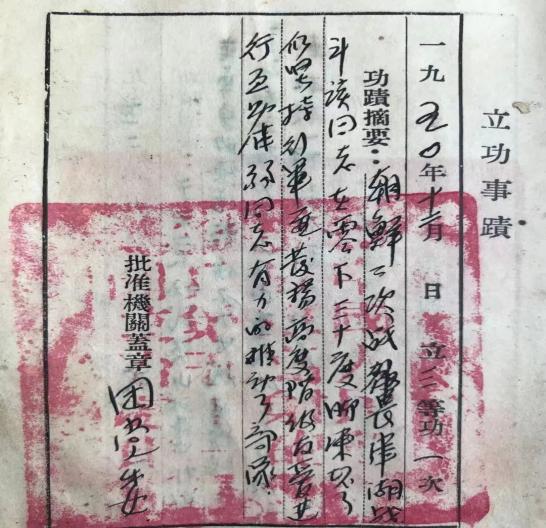 立功事蹟
一九五〇年十二月 日 立三等功一次
功蹟摘要：朝鮮二次战役長津湖战
斗该同志在零下三十度脚凍坏了
仍坚持行軍並發揚高度階级友爱进
行互助体弱同志有力的推动了部队
批准機關蓋章 团党委